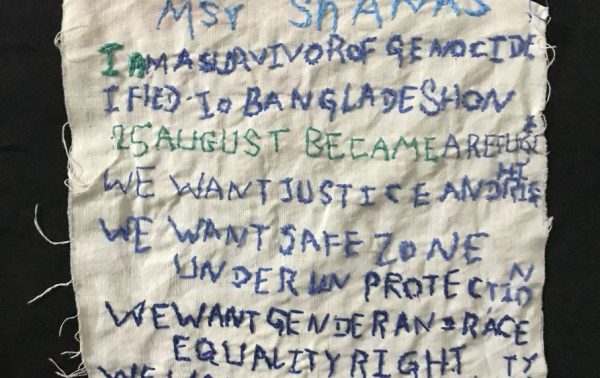 MSr SAANAS
I AM A SURVIVOR OF GENOCIDE
I FIED TO BANGLADESH ON
25 AUGUST BECAME A REFUGE
WE WANT JUSTICE AND RIGHT
WE WANT SAFE ZONE
UNDER UN PROTECTION
WE WANT GENDER AND RACE
EQUALITY RIGHT
WE